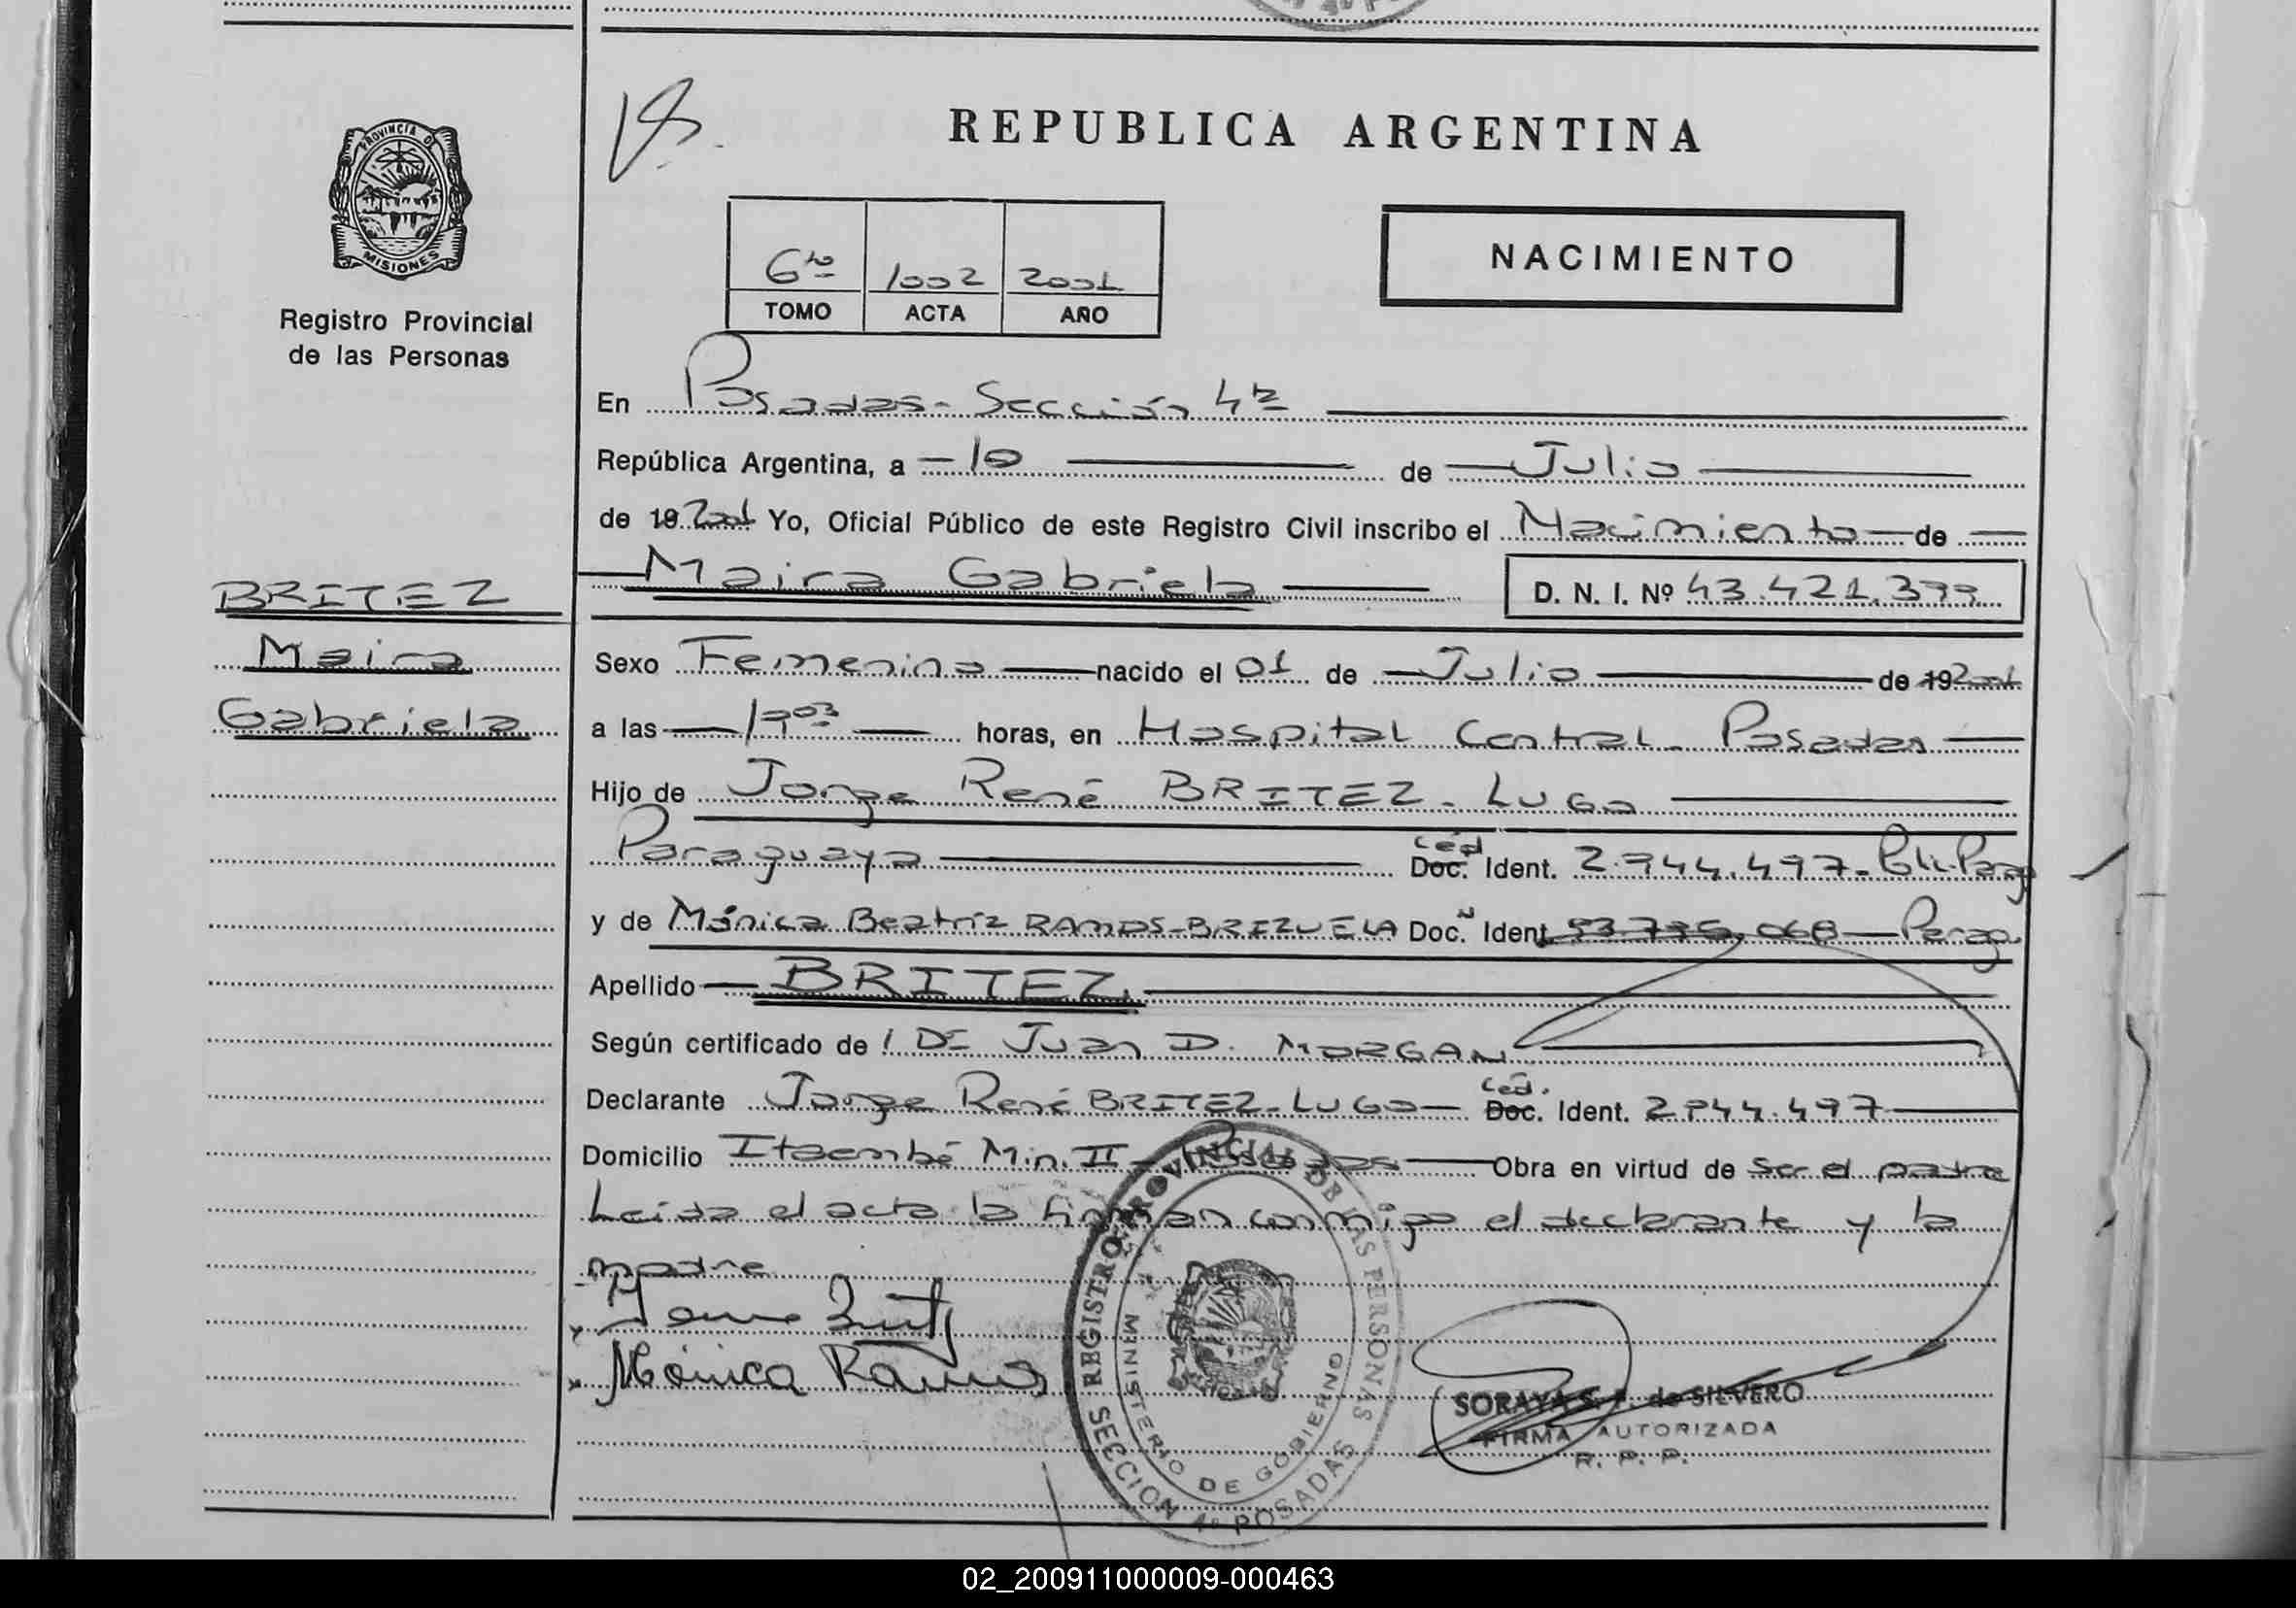 REPUBLICA ARGENTINA
PROVINCIA DE MISIONES
Registro Provincial
de las Personas
6to 1002 2001
TOMO ACTA AÑO
NACIMIENTO
En Posadas - Sección 4ta
República Argentina, a - 10 de Julio
de 19 2001 Yo, Oficial Público de este Registro Civil inscribo el Nacimiento de
Maira Gabriela D. N. I. Nº 43.421.399
BRITEZ
Maira
Gabriela
Sexo Femenino nacido el 01 de Julio de 19 2001
a las 1903 horas, en Hospital Central - Posadas
Hijo de Jorge René BRITEZ - LUGO
Paraguaya Céd Doc. Ident. 2.944.497 - Parag
y de Mónica Beatríz RAMOS-BRIZUELA Doc. N Ident 068 - Parag.
Apellido BRITEZ
Según certificado de Dr Juan D. MORGAN
Declarante Jorge René BRITEZ - LUGO - Céd. Doc. Ident. 2.944.497
Domicilio Itaembé Min. II - Posadas Obra en virtud de ser el padre
Leida el acta la firman conmigo el declarante y la
madre
Mónica Ramos
REGISTRO PROVINCIAL DE LAS PERSONAS
MINISTERIO DE GOBIERNO
SECCION 4a POSADAS
SORAYA S. F. de SILVERO
FIRMA AUTORIZADA
R. P. P.
02_200911000009-000463